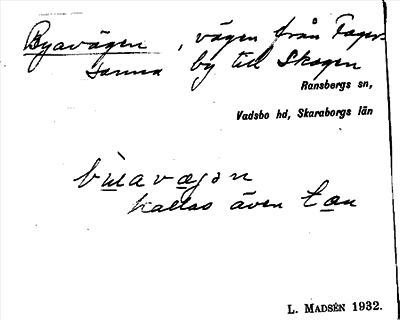 Byavägen, vägen från Fager-
sanna by till Skogen
Ransbergs sn,
Vadsbo hd, Skaraborgs län
kallas även
L. MADSÉN 1932.